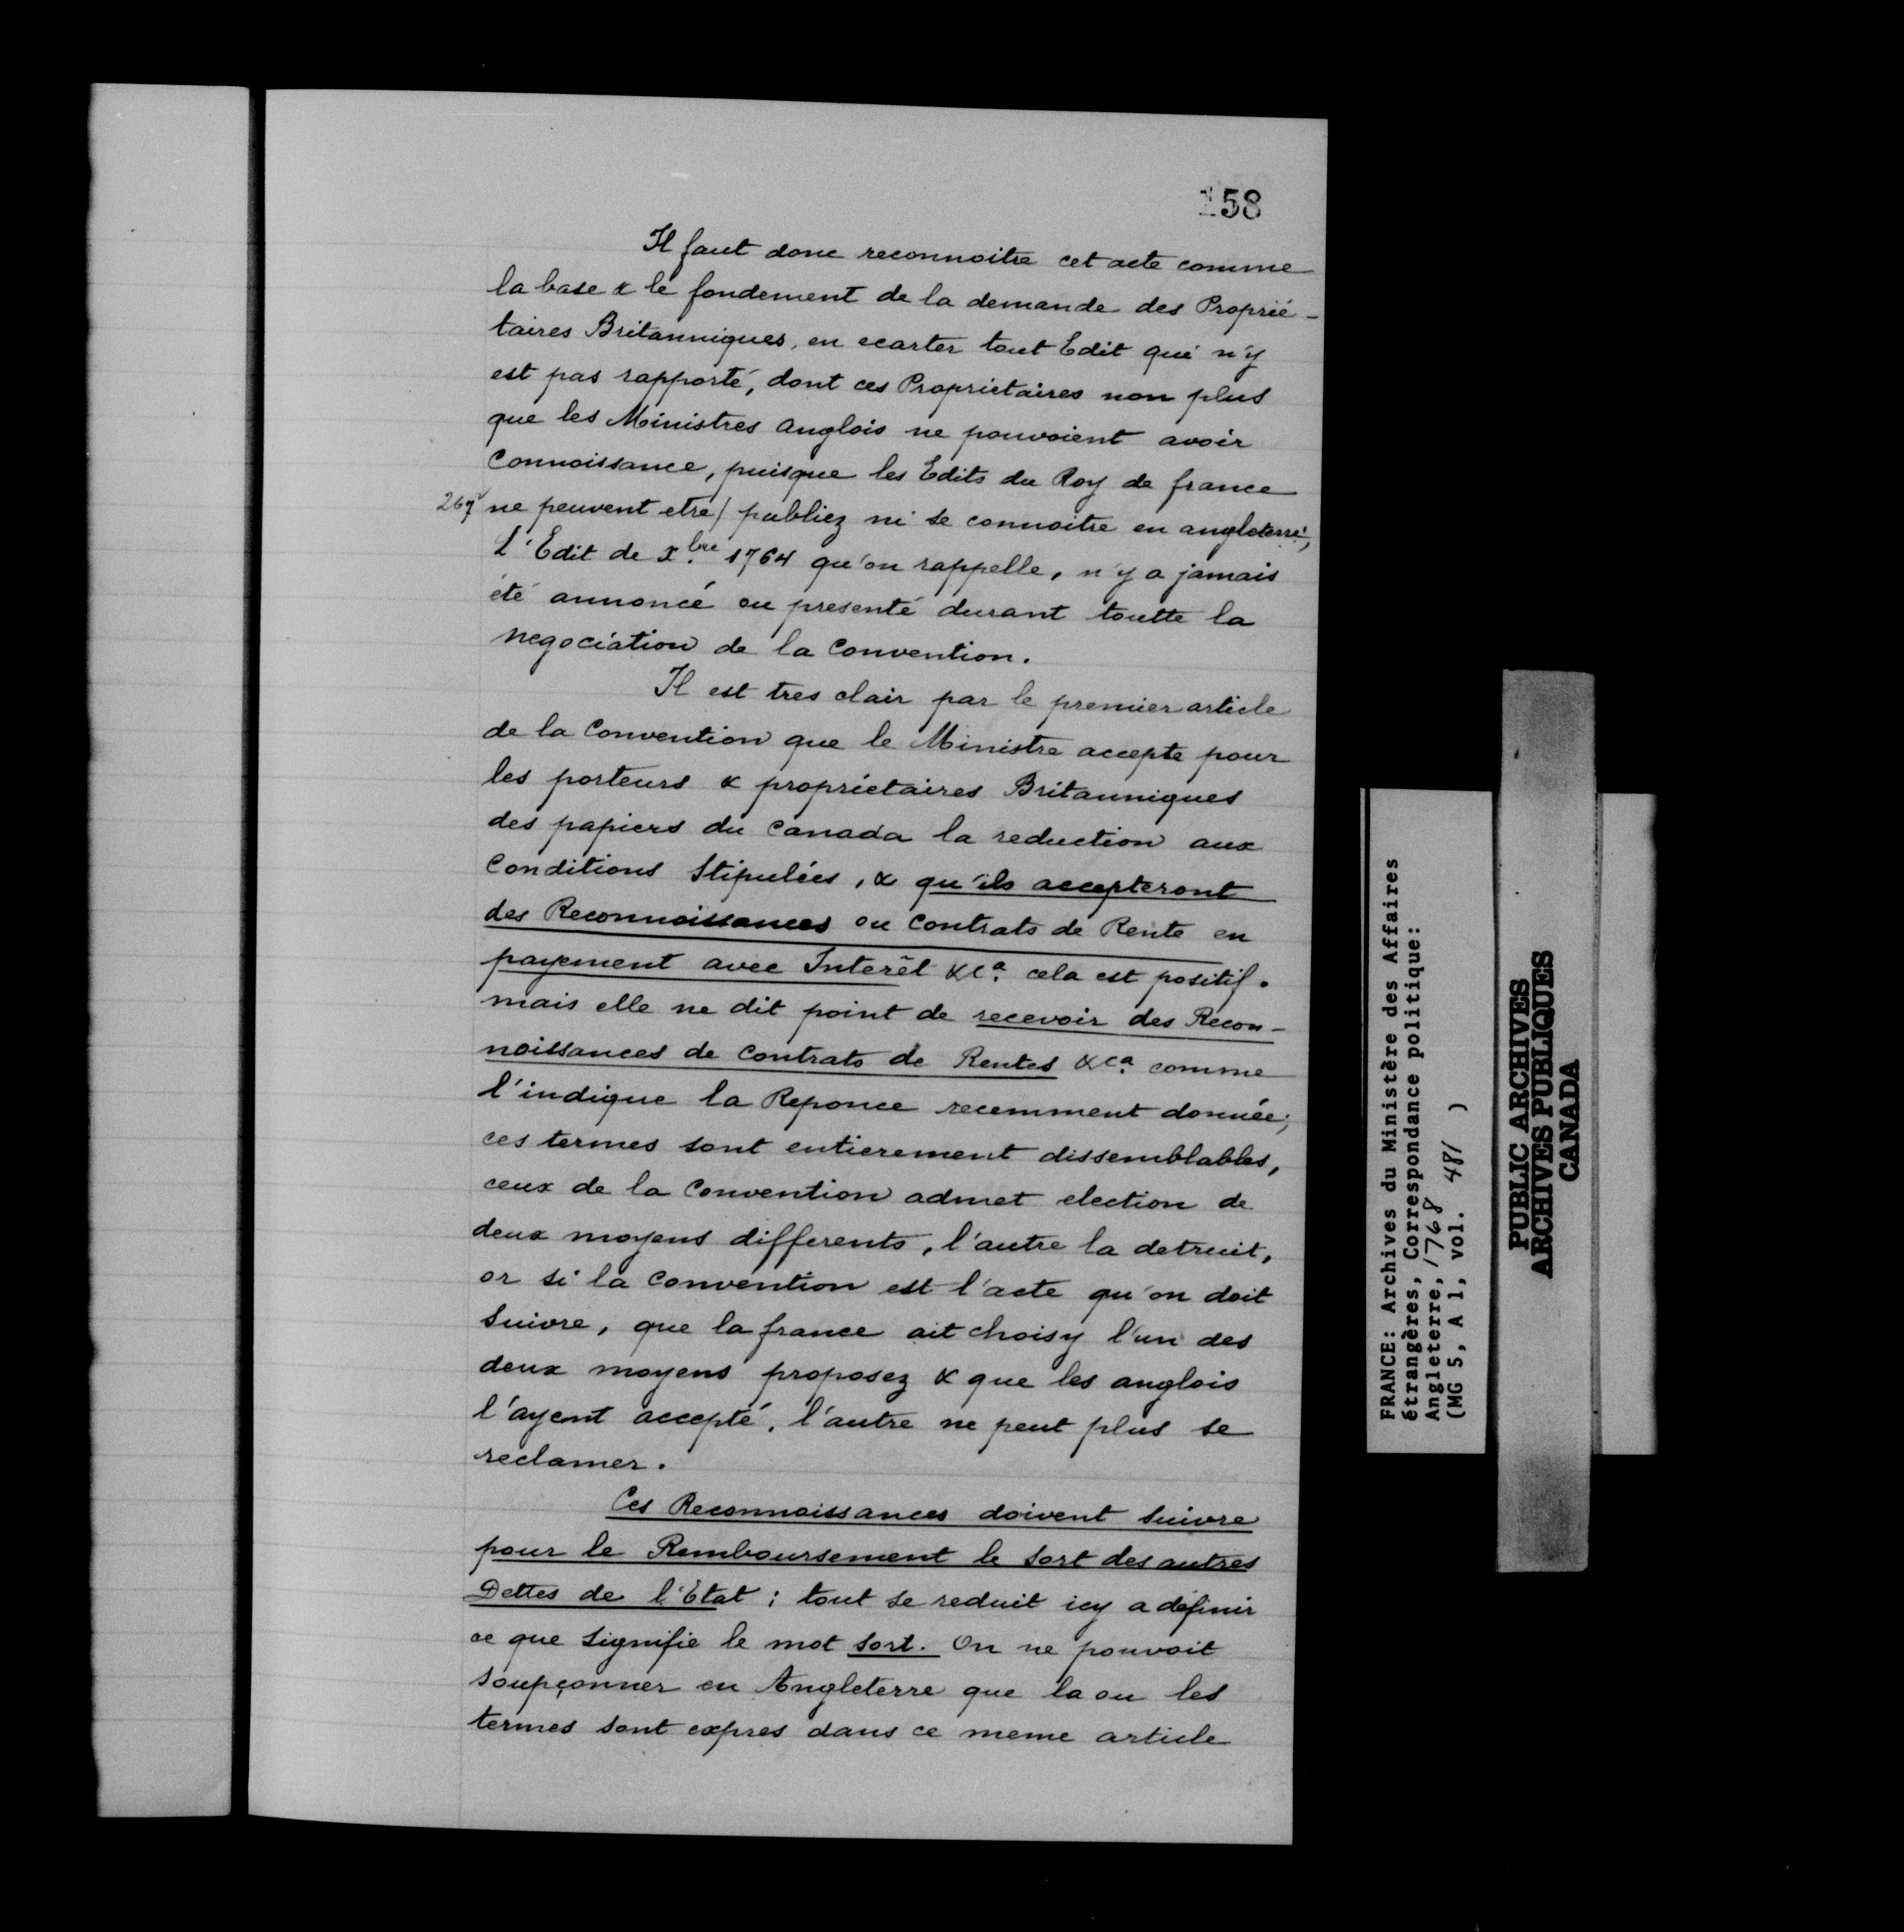 158
Il faut donc reconnoitre cet acte comme
la base & le fondement de la demande des Proprié-
taires Britanniques, en ecarter tout Edit qui n'y
est pas rapporté, dont ces Proprietaires non plus
que les Ministres anglois ne pouvoient avoir
Connoissance, puisque les Edits du Roy de france
267v ne peuvent etre/ publiez ni se connoitre en angleterre,
L'Edit de Xbre 1764 qu'on rappelle, n'y a jamais
été annoncé ou presenté durant toutte la
negociation de la Convention.
Il est tres clair par le premier article
de la Convention que le Ministre accepte pour
les porteurs & propriétaires Britanniques
des papiers du Canada la reduction aux
Conditions Stipulées, & qu'ils accepteront
des Reconnoissances ou Contrats de Rente en
payement avec Interêt &ca. cela est positif.
mais elle ne dit point de recevoir des Recon-
noissances de Contrats de Rentes &ca. comme
l'indique la Reponce recemment donnée;
ces termes sont entierement dissemblables,
ceux de la Convention admet election de
deux moyens differents, l'autre la detruit,
or si la Convention est l'acte qu'on doit
Suivre, que la france ait choisy l'un des
deux moyens proposez & que les anglois
l'ayent accepté, l'autre ne peut plus se
reclamer.
Ces Reconnoissances doivent Suivre
pour le Remboursement le Sort des autres
Dettes de l'Etat; tout se reduit icy a définir
ce que Signifie le mot Sort. On ne pouvoit
Soupçonner en Angleterre que la ou les
termes sont expres dans ce meme article
FRANCE: Archives du Ministère des Affaires
étrangères, Correspondance politique:
Angleterre, 1768
(MG 5, A 1, vol. 481 )
PUBLIC ARCHIVES
ARCHIVES PUBLIQUES
CANADA